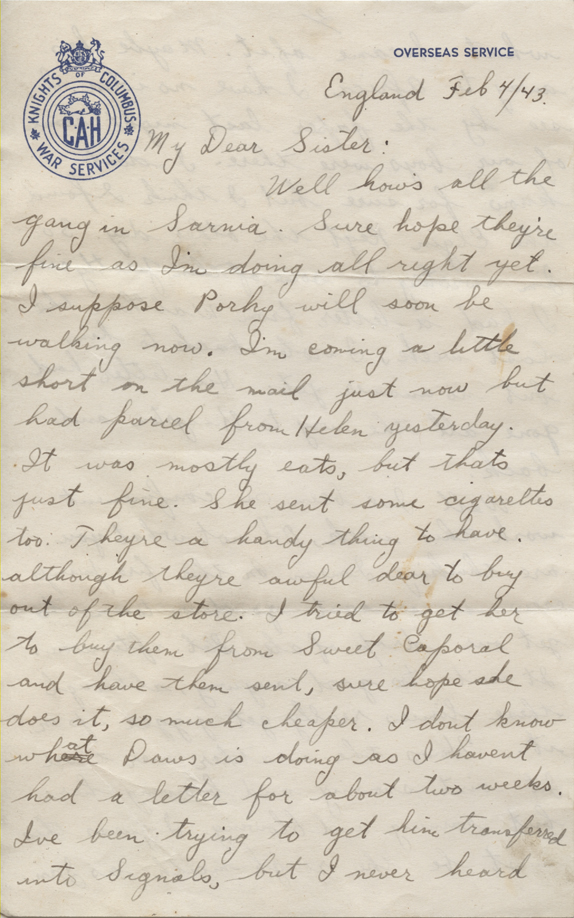 OVERSEAS SERVICE
KNIGHTS OF COLUMBUS
CAH
WAR SERVICES
England Feb 4/43.
My Dear Sister:
Well how's all the
gang in Sarnia. Sure hope they're
fine as I'm doing all right yet.
I suppose Porky will soon be
walking now. I'm coming a little
short on the mail just now but
had parcel from Helen yesterday.
It was mostly eats, but thats
just fine. She sent some cigarettes
too. Theyre a handy thing to have.
although theyre awful dear to buy
out of the store. I tried to get her
to buy them from Sweet Caporal
and have them sent, sure hope she
does it, so much cheaper. I dont know
what Daws is doing as I havent
had a letter for about two weeks.
I've been trying to get him transferred
into Signals, but I never heard